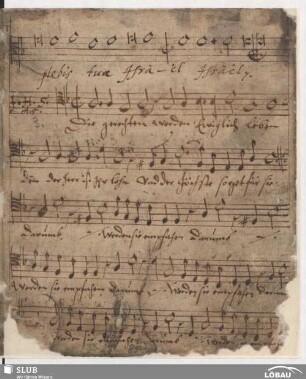 plebis tuæ Isra-el Israel
Die gerechten werden Ewiglich leben
den der herr ist Ihr lohn Und der höchste sorget für sie
darumb werden sie empfahen darumb
werden sie empfahen darumb werden sie empfahen darumb
SLUB
Wir führen Wissen.
LÖBAU